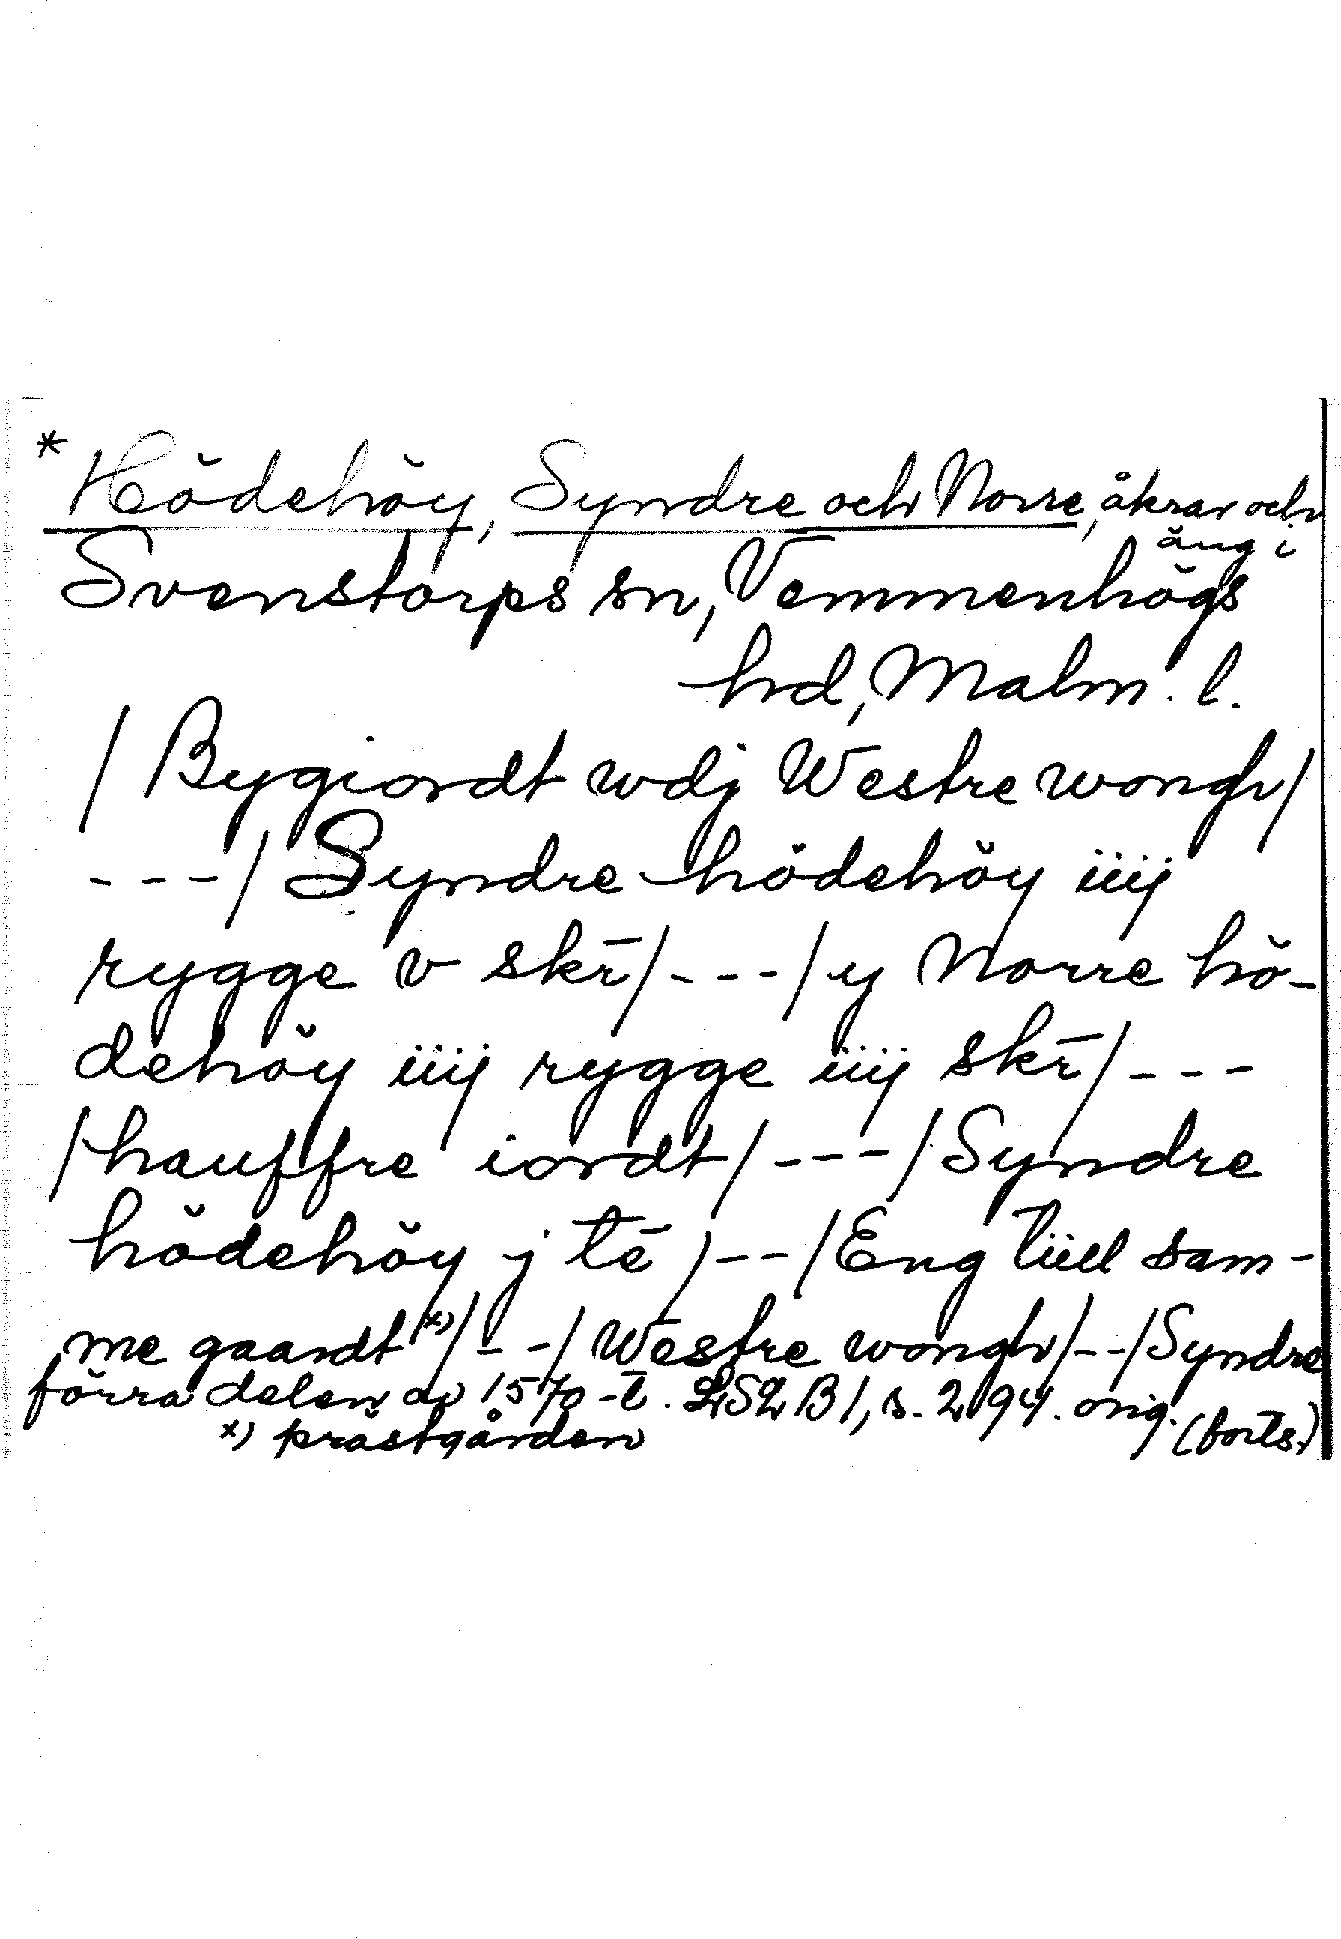 * Hödehöy, Syndre och Norre, åkrar och
äng i
Svenstorps sn, Vemmenhögs
hd, Malm. l.
/ Bygiordt wdj Westre wongh /
---/ Syndre hödehöy iiij
rygge v skr̄ /---/ y Norre hö-
dehöy iiij rygge iiij skr̄ /---
/ hauffre iordt /---/ Syndre
hödehöy j tē /--/ Eng tiill sam-
me gaardt x) /--/ Westre wongh /--/ Syndre
förra delen av 1570-t. LSL B1, s. 294. orig. (forts.)
x) prästgården